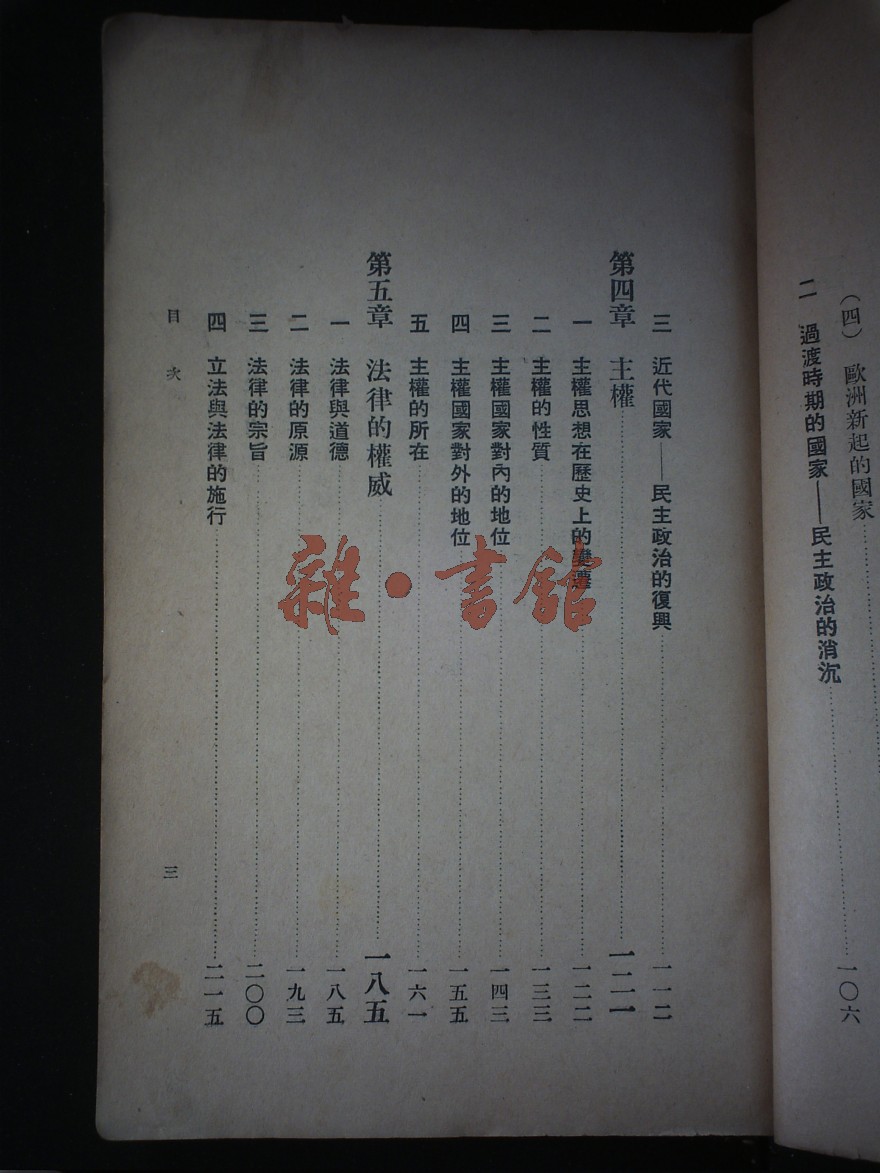 (四) 歐洲新起的國家
二 過渡時期的國家——民主政治的消沉 一〇六
三 近代國家——民主政治的復興 一一二
第四章 主權 一二一
一 主權思想在歷史上的變遷 一二二
二 主權的性質 一三三
三 主權國家對內的地位 一四三
四 主權國家對外的地位 一五五
五 主權的所在 一六一
第五章 法律的權威 一八五
一 法律與道德 一八五
二 法律的原源 一九三
三 法律的宗旨 二〇〇
四 立法與法律的施行 二一五
目次 三
雜·書館